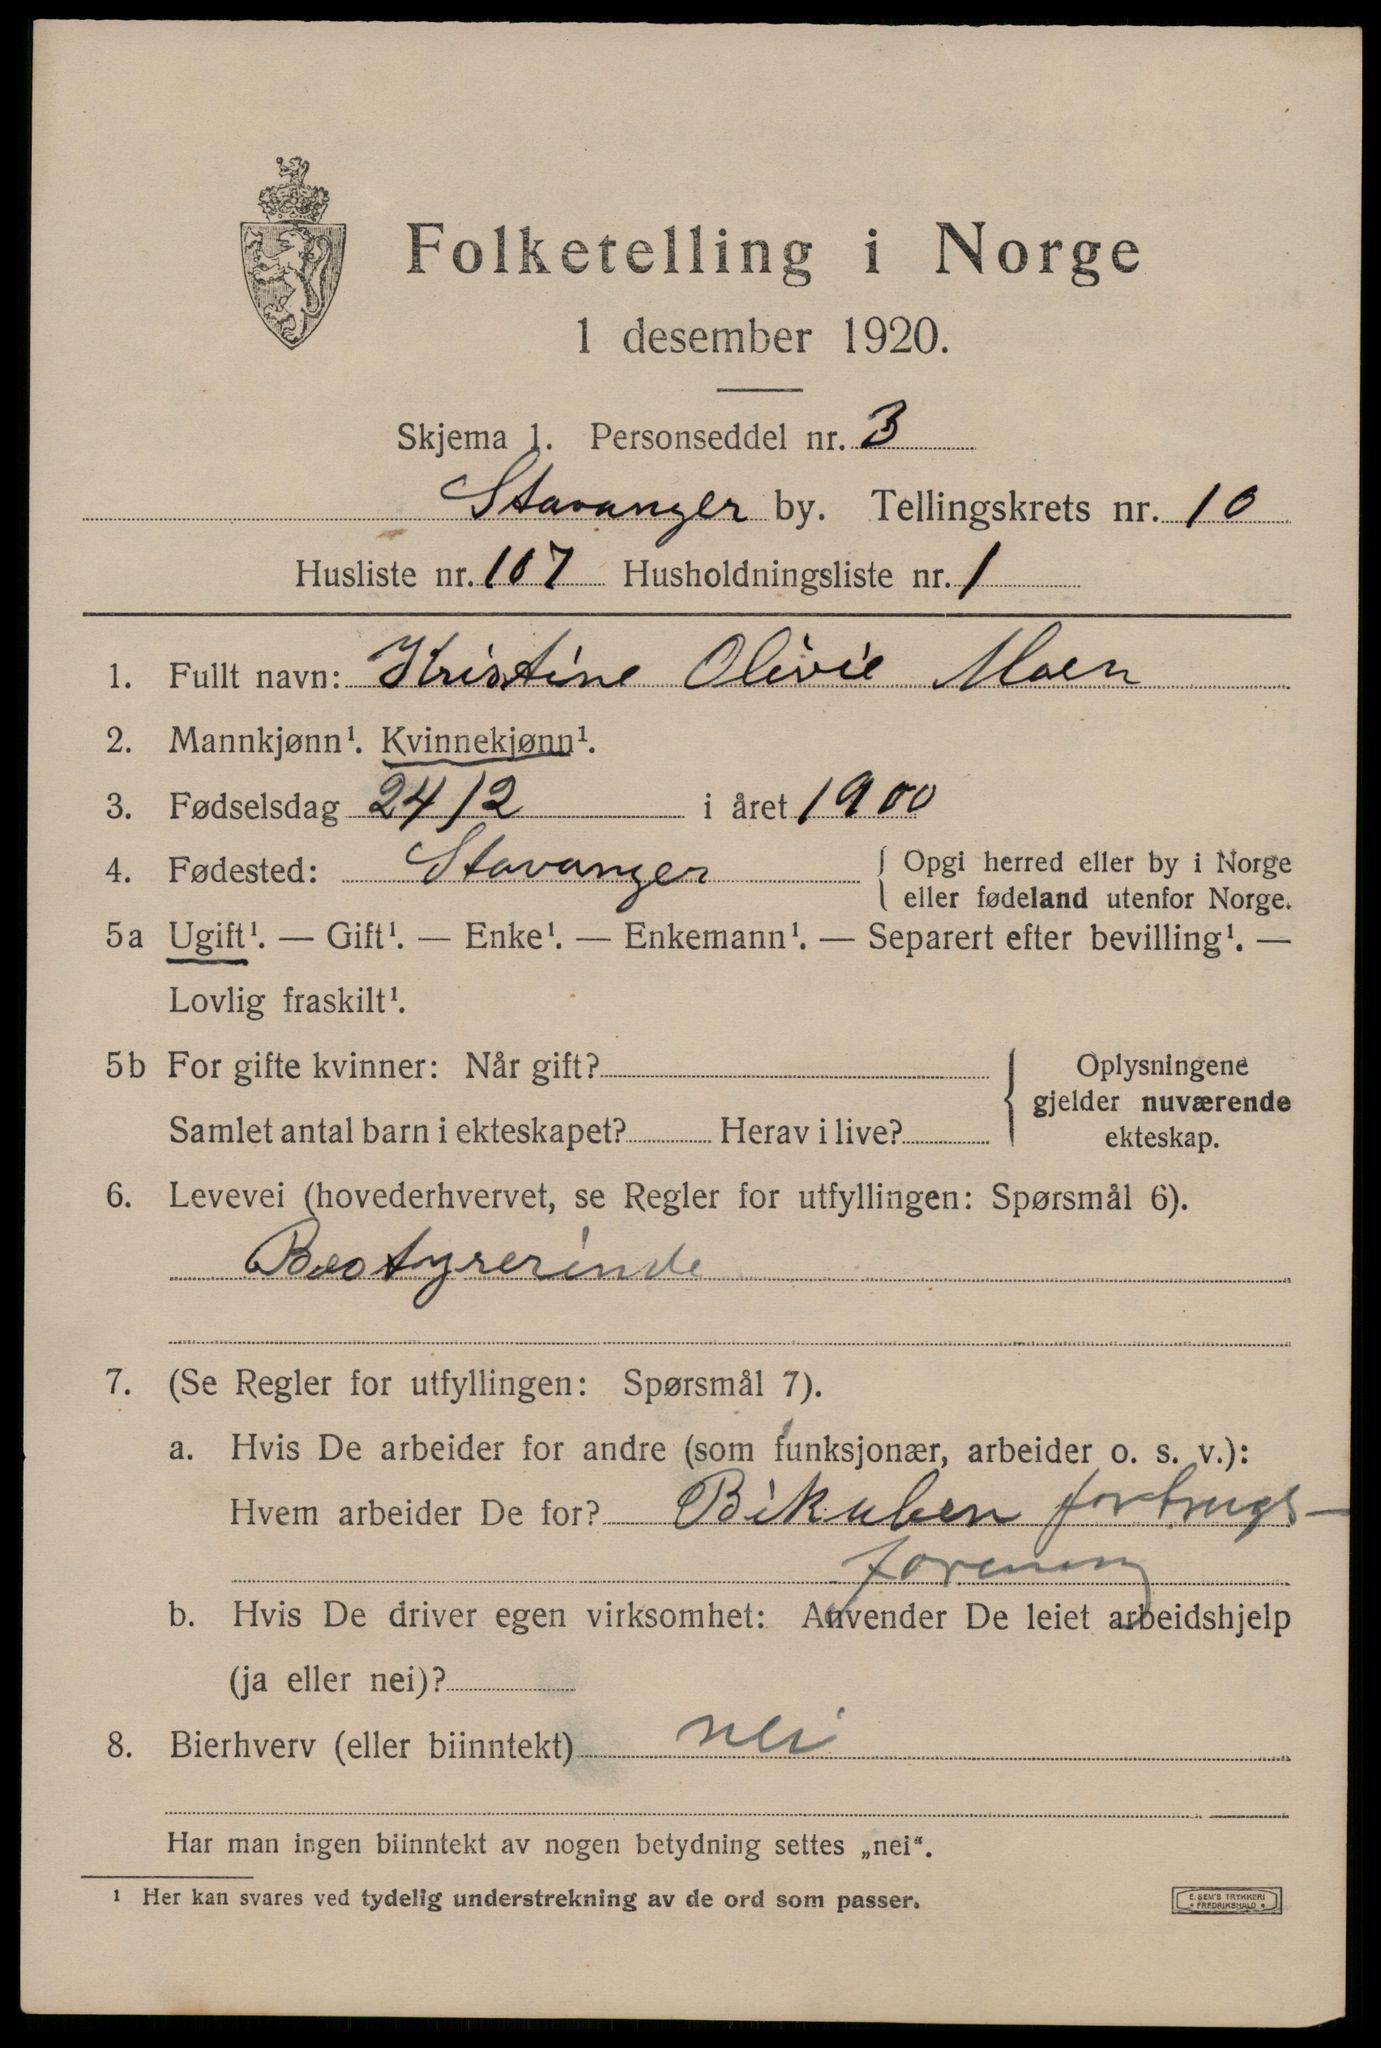 Folketelling i Norge
1 desember 1920.
Skjema 1. Personseddel nr. 3
Stavanger by. Tellingskrets nr. 10
Husliste nr. 107 Husholdningsliste nr. 1
1. Fullt navn: Kristine Olivie Moen
2. Mannkjønn¹. Kvinnekjønn¹.
3. Fødselsdag 24/2 i året 1900
4. Fødested: Stavanger { Opgi herred eller by i Norge
eller fødeland utenfor Norge.
5a Ugift¹. — Gift¹. — Enke¹. — Enkemann¹. — Separert efter bevilling¹. —
Lovlig fraskilt¹.
5b For gifte kvinner: Når gift?
Samlet antal barn i ekteskapet? Herav i live?
{ Oplysningene
gjelder nuværende
ekteskap.
6. Levevei (hovederhvervet, se Regler for utfyllingen: Spørsmål 6).
Bestyrerinde
7. (Se Regler for utfyllingen: Spørsmål 7).
a. Hvis De arbeider for andre (som funksjonær, arbeider o. s. v.):
Hvem arbeider De for? Bikuben forbrugs-
forening
b. Hvis De driver egen virksomhet: Anvender De leiet arbeidshjelp
(ja eller nei)?
8. Bierhverv (eller biinntekt) nei
Har man ingen biinntekt av nogen betydning settes „nei“.
¹ Her kan svares ved tydelig understrekning av de ord som passer.
E. SEM'S TRYKKERI
* FREDRIKSHALD *